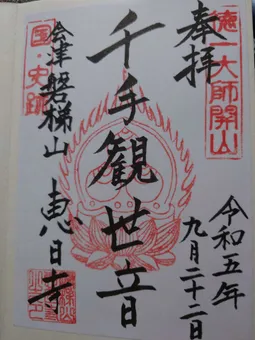 奉拝
徳一大師開山
令和五年
九月二十二日
千手観世音
国・史跡
会津磐梯山
恵日寺